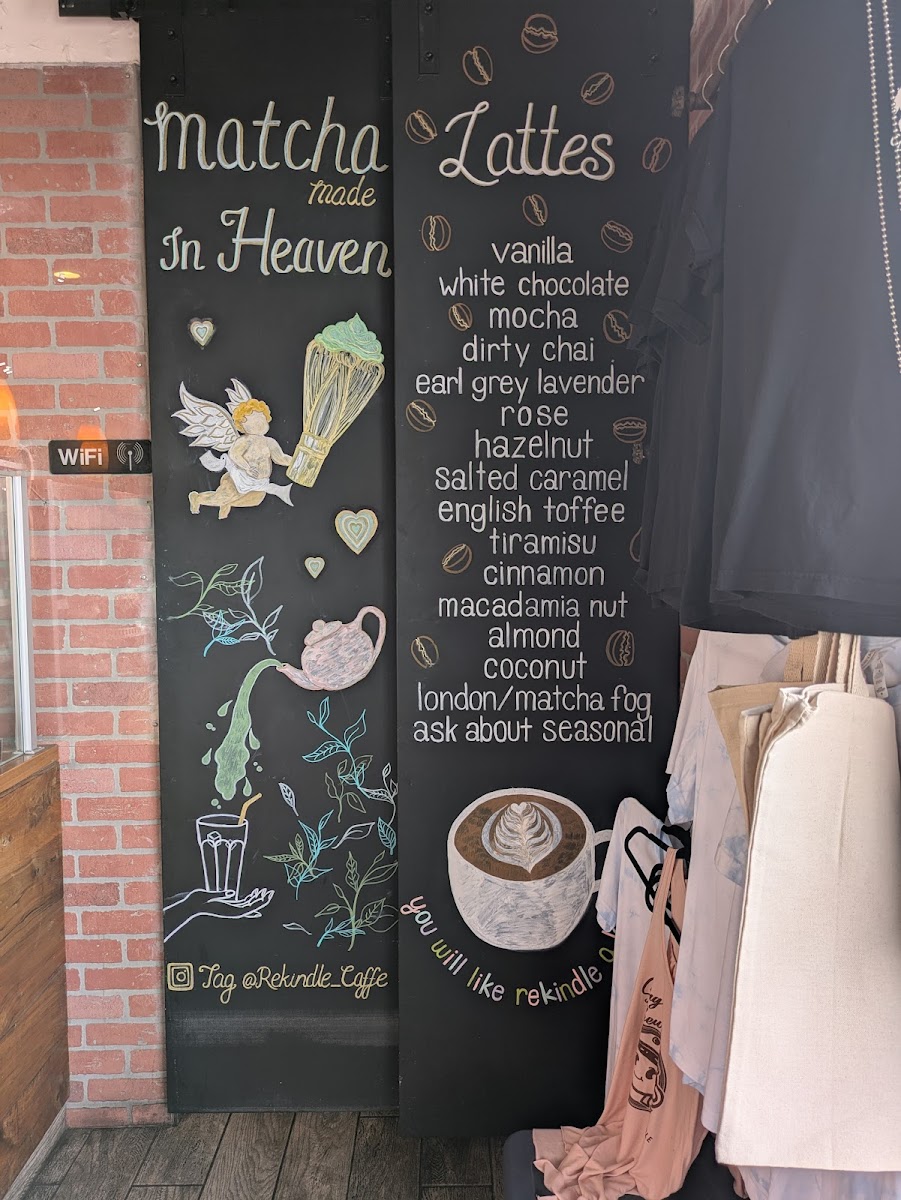 WiFi
Matcha
made
In Heaven
Tag @Rekindle_Caffe
Lattes
vanilla
white chocolate
mocha
dirty chai
earl grey lavender
rose
hazelnut
salted caramel
english toffee
tiramisu
cinnamon
macadamia nut
almond
coconut
london/matcha fog
ask about seasonal
you will like rekindle